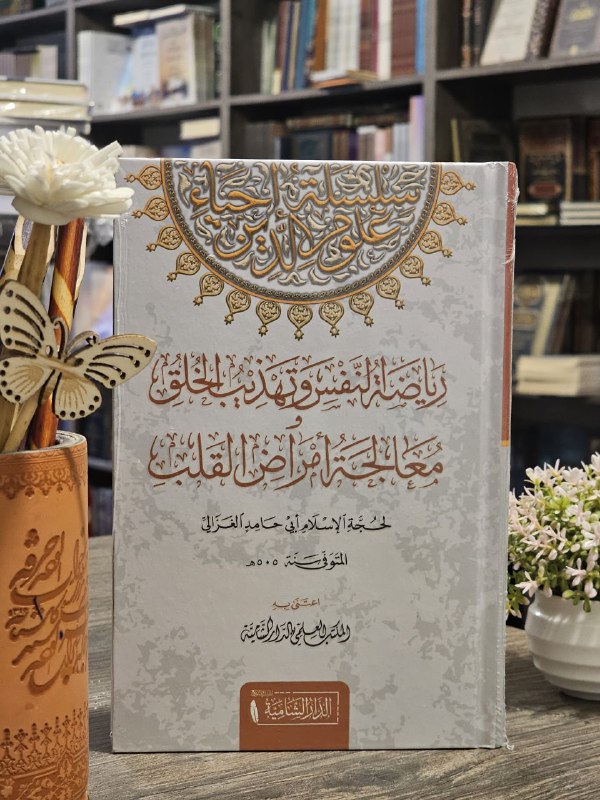 سلسلة إحياء
علوم الدين
رياضة النفس وتهذيب الخلق
و
معالجة أمراض القلب
لحجة الإسلام أبي حامد الغزالي
المتوفى سنة ٥٠٥ هـ
اعتنى به
المكتب العلمي بالدار الشامية
الدار الشامية